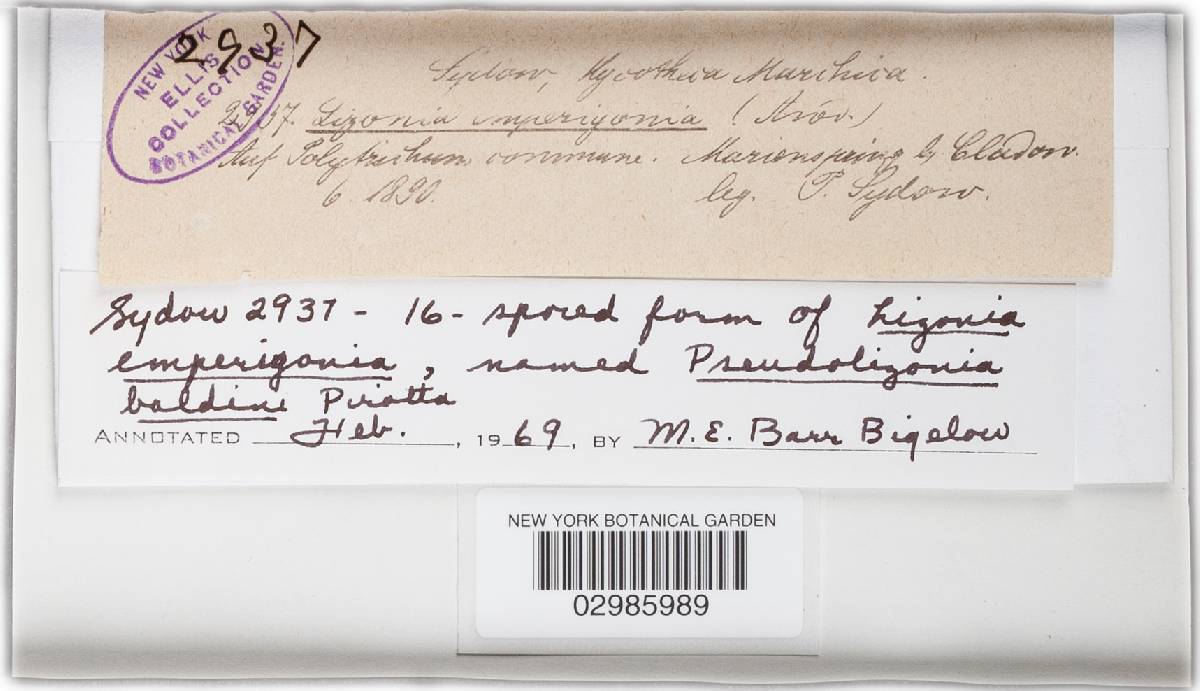 2937
NEW YORK
ELLIS
COLLECTION
BOTANICAL GARDEN.
Sydow, Mycotheca Marchica.
2937. Lizonia emperigonia (Auersw.)
Auf Polytrichum commune. Marienspring b. Cladow.
6 1890. leg. P. Sydow.
Sydow 2937 - 16 - spored form of Lizonia
emperigonia, named Pseudolizonia
baldini Pirotta
ANNOTATED Feb., 1969, BY M. E. Barr Bigelow
NEW YORK BOTANICAL GARDEN
02985989